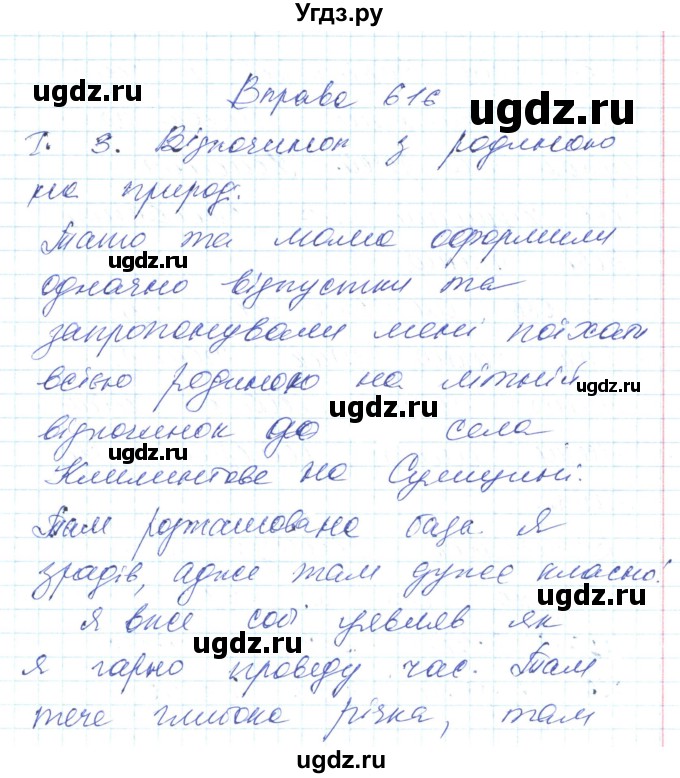 Угдз.ру
Вправа 616
ugdz.ru
ugdz.ru
І. 3. Відпочинок з родиною
на природі.
Тато та мама оформили
ugdz.ru
одначно відпустки та
запропонували мені поїхати
всією родиною на літній
ugdz.ru
ugdz.ru
відпочинок до села
ugdz.ru
Климентове на Сумщині.
Там розташована база. Я
зрадів, адже там дуже класно!
ugdz.ru
Я вже собі уявляв як
ugdz.ru
я гарно проведу час. Там
тече глибока річка, там
ugdz.ru